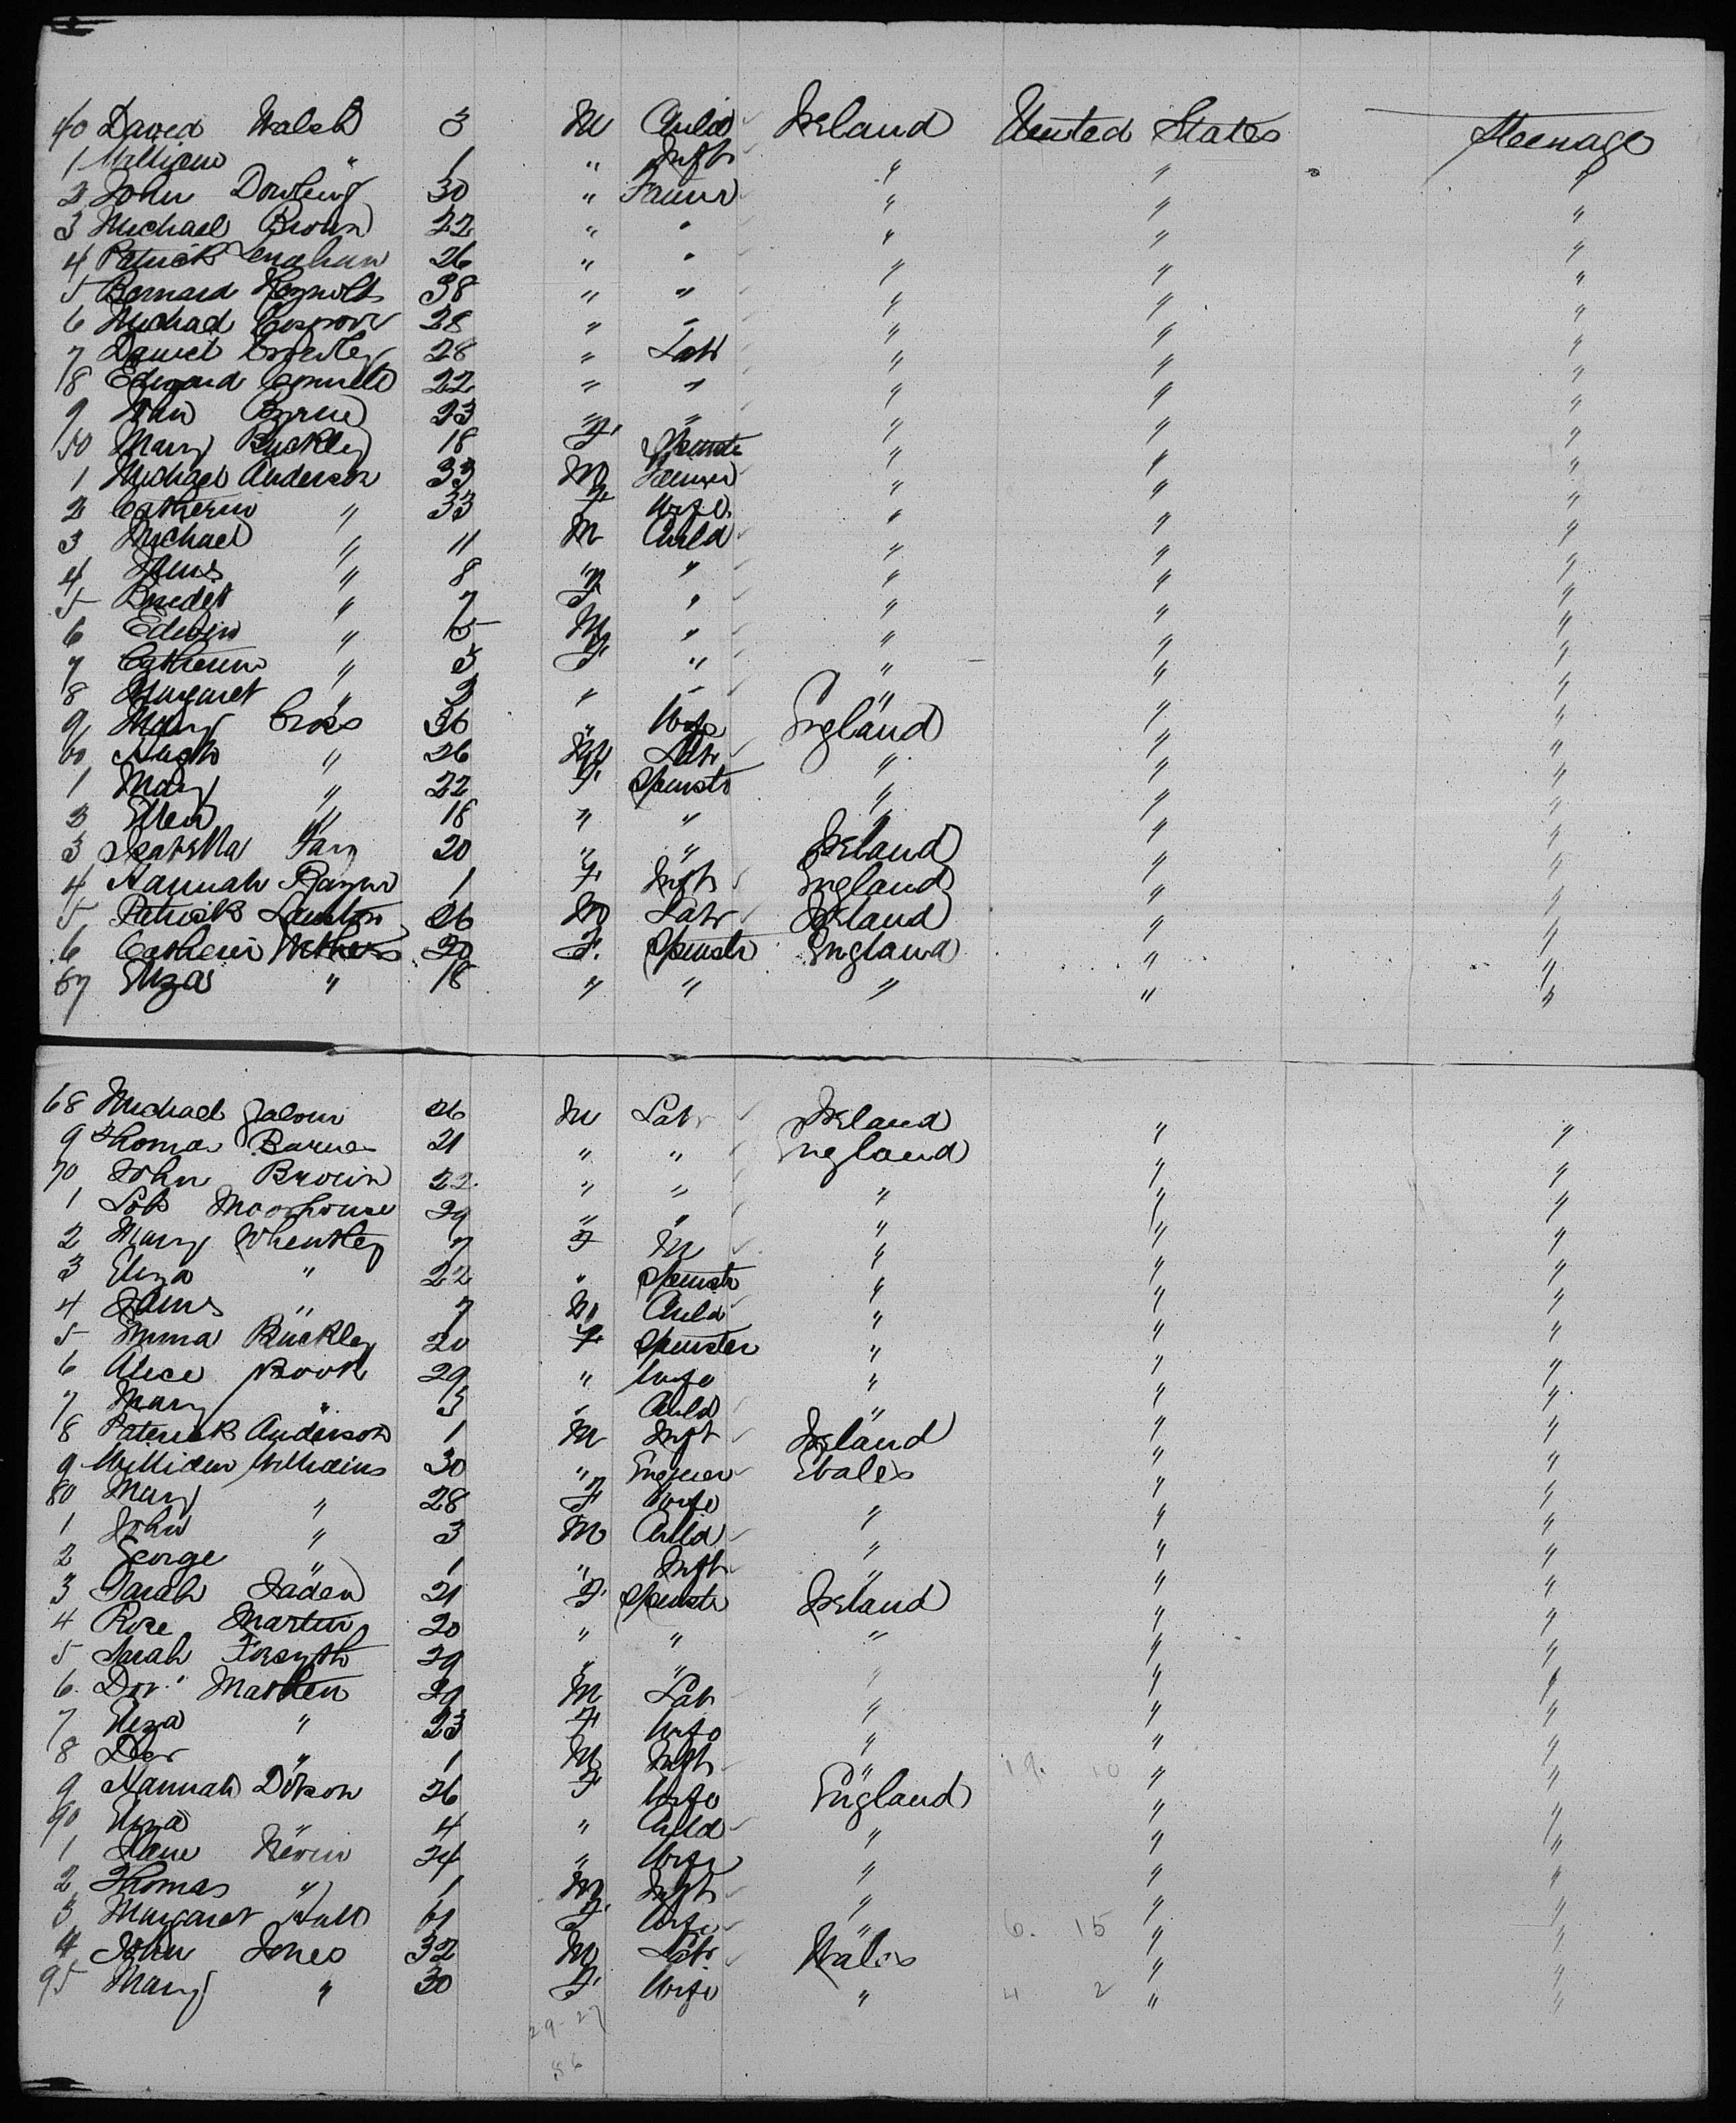 40 David Walsh 3 M Child Ireland United States Steerage
1 William " 1 " Inft " " "
2 John Dowling 30 " Farmr " " "
3 Michael Brown 22 " " " " "
4 Patrick Lenahan 26 " " " " "
5 Bernard Reynolds 38 " " " " "
6 Michael Cosgrove 28 " " " " "
7 Daniel 28 " Labr " " "
18 Edward Connell 22 " " " " "
9 John Byrne 23 " " " " "
50 Mary Buckley 18 F. Spinstr " " "
1 Michael Anderson 33 M Farmer " " "
2 Catherin " 33 F Wife " " "
3 Michael " 11 M Child " " "
4 James " 8 " " " " "
5 " 7 F " " " "
6 Edwin " 5 M " " " "
7 Catherin " 3 F " " " "
8 Margaret " 2 " " " " "
9 Mary Cross 36 " Wife England " "
60 Hugh " 26 M Labr " " "
1 Mary " 22 F Spinstr " " "
2 Ellen " 18 " " " " "
3 Isabella 20 " " Ireland " "
4 Hannah 1 F Inft England " "
5 Patrick 26 M Labr Ireland " "
6 Catherin 20 F. Spinstr England " "
67 Eliza " 18 " " " " "
68 Michael Galvin 26 M Labr Ireland " "
9 Thomas Barnes 21 " " England " "
70 John Brown 22 " " " " "
1 Moorhouse 29 " " " " "
2 Mary Wheatley 7 F " " "
3 Eliza " 22 " Spinstr " " "
4 James " 7 M Child " " "
5 Emma Buckley 20 F Spinster " " "
6 Alice Brook 29 " Wife " " "
7 Mary " 3 " Child " " "
8 Paterick Anderson 1 M Inft Ireland " "
9 William Williams 30 " Engineer Wales " "
80 Mary " 28 F Wife " " "
1 John " 3 M Child " " "
2 George " 1 " Inft " " "
3 Sarah 21 F Spinstr Ireland " "
4 Rose Martin 20 " " " " "
5 Sarah Forsyth 29 " " " " "
6. 29 M Labr " " "
7 Eliza " 23 F Wife " " "
8 " 1 M Inft " " "
9 Hannah Dobson 26 F Wife England " "
90 Eliza " 4 " Child " " "
1 Jane Nevin 24 " Wife " " "
2 Thomas " 1 M Inft " " "
3 Margaret 61 F Wife " 6. 15 " "
4 John Jones 32 M Labr Wales " "
95 Mary " 30 F Wife " 4 2 " "
29-27
56